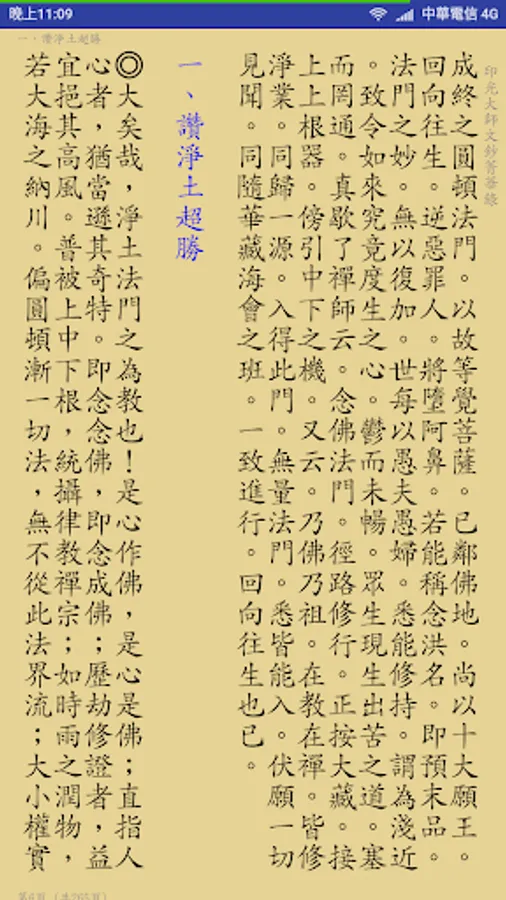 晚上11:09 中華電信 4G
一、讚淨土超勝
印光大師文鈔菁華錄
成終之圓頓法門。以故等覺菩薩。已鄰佛地。尚以十大願王。
回向往生。逆惡罪人。將墮阿鼻。若能稱念洪名。即預末品。
法門之妙。無以復加。世每以愚夫愚婦。悉能修持。謂為淺近
。致令如來究竟度生之心。鬱而未暢。眾生現生出苦之道。塞
而罔通。真歇了禪師云。念佛法門。徑路修行。正按大藏。接
上上根器。傍引中下之機。又云。乃佛乃祖。在教在禪。皆修
淨業。同歸一源。入得此門。無量法門。悉皆能入。伏願一切
見聞。同隨華藏海會之班。一致進行。回向往生也已。
一、讚淨土超勝
◎大矣哉，淨土法門之為教也！是心作佛，是心是佛；直指人
心者，猶當遜其奇特。即念念佛，即念成佛；歷劫修證者，益
宜挹其高風。普被上中下根，統攝律教禪宗；如時雨之潤物，
若大海之納川。偏圓頓漸一切法，無不從此法界流；大小權實